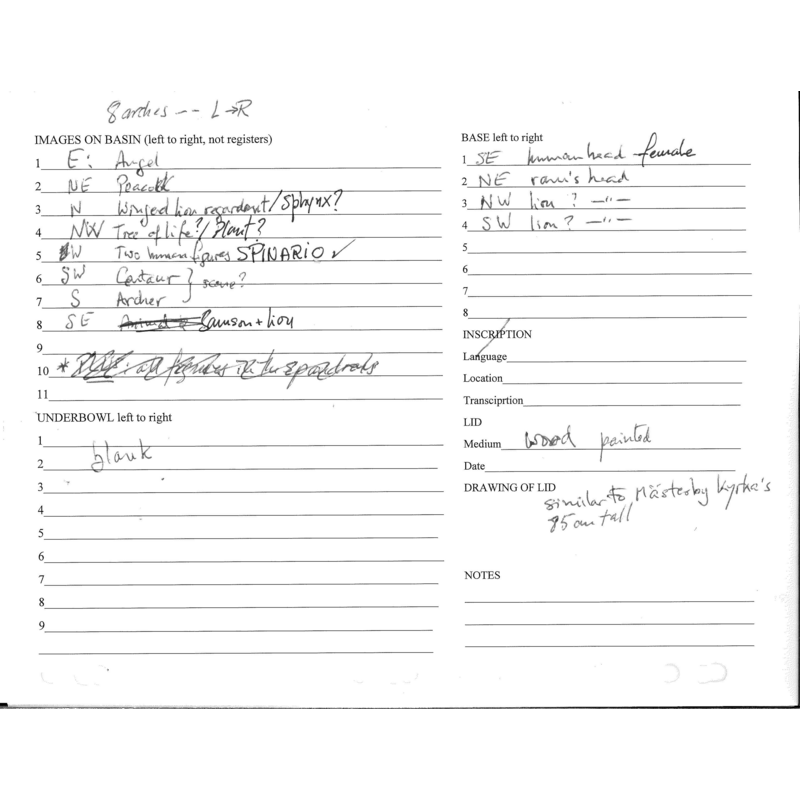 8 arches -- L→R
IMAGES ON BASIN (left to right, not registers)
1 E: Angel
2 NE Peacock
3 N Winged lion regardant/Sphynx?
4 NW Tree of life?/Plant?
5 W Two human figures SPINARIO ✓
6 SW Centaur } scene?
7 S Archer
8 SE Samson + lion
9
10 * all figures in the spandrels
11
UNDERBOWL left to right
1
2 blank
3
4
5
6
7
8
9
BASE left to right
1 SE human head female
2 NE ram's head
3 NW lion ? —"—
4 SW lion? —"—
5
6
7
8
INSCRIPTION
Language
Location
Transciprtion
LID
Medium wood painted
Date
DRAWING OF LID
similar to Mästerby Kyrka's
85cm tall
NOTES